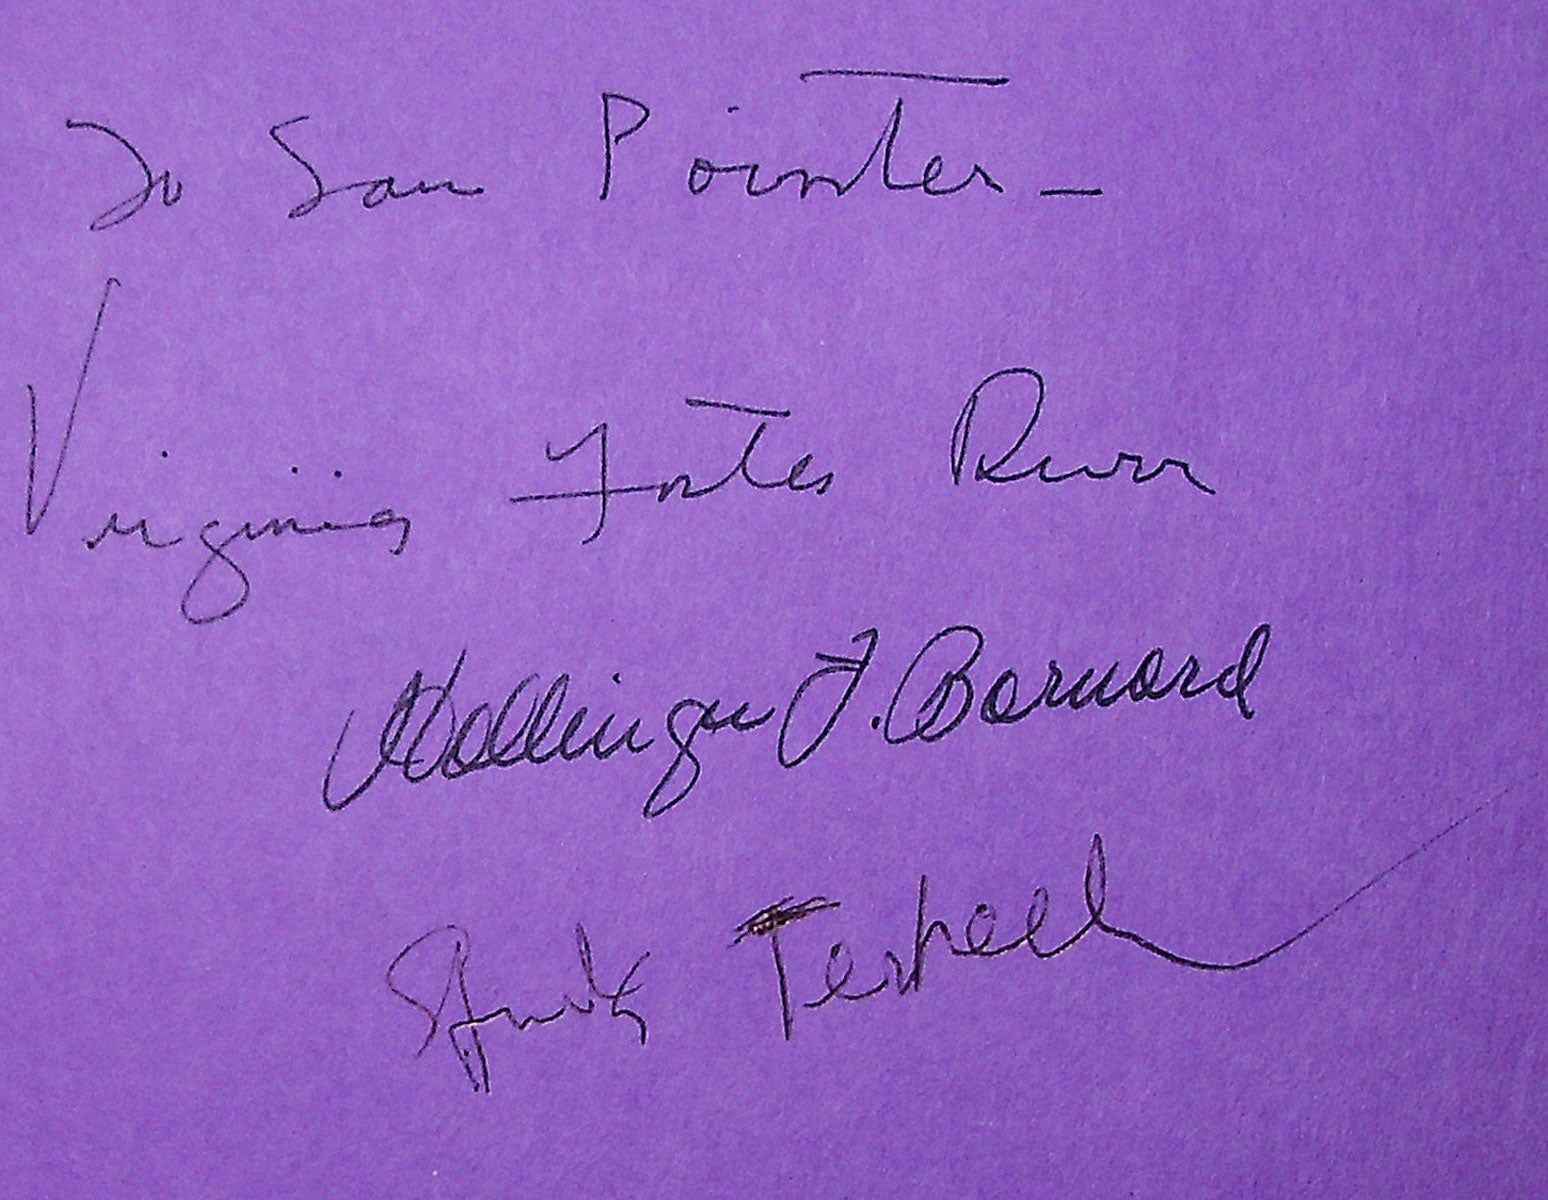 To Sam Pointer –
Virginia Foster Durr
Hollinger F. Barnard
Studs Terkel